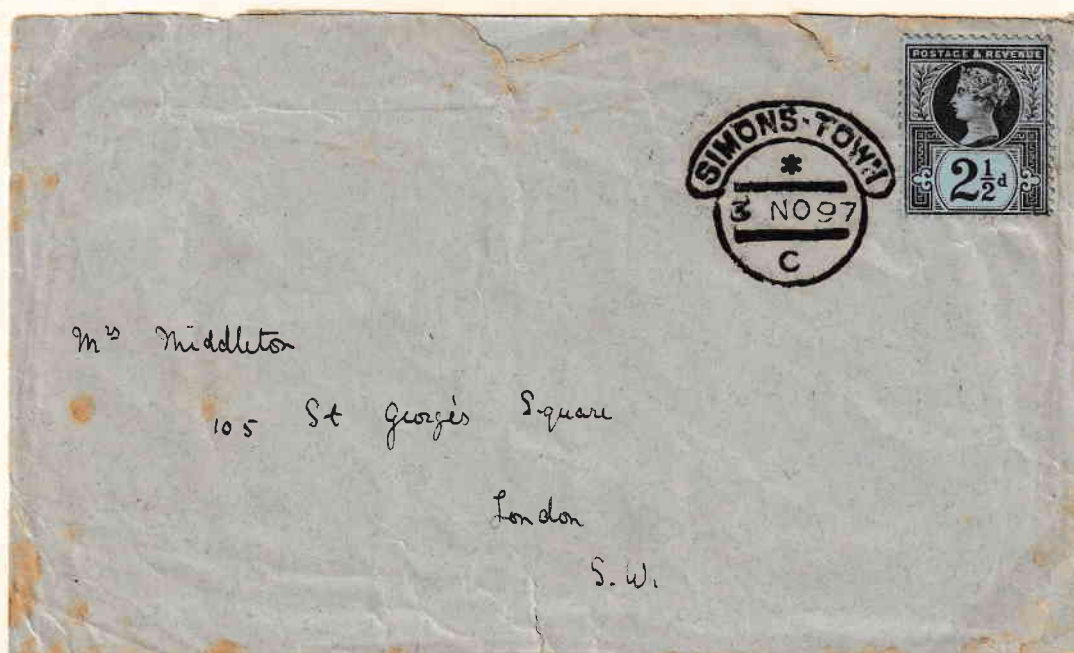 POSTAGE & REVENUE
2½d
SIMONS-TOWN
*
3 NO97
C
Mrs Middleton
105 St George's Square
London
S.W.